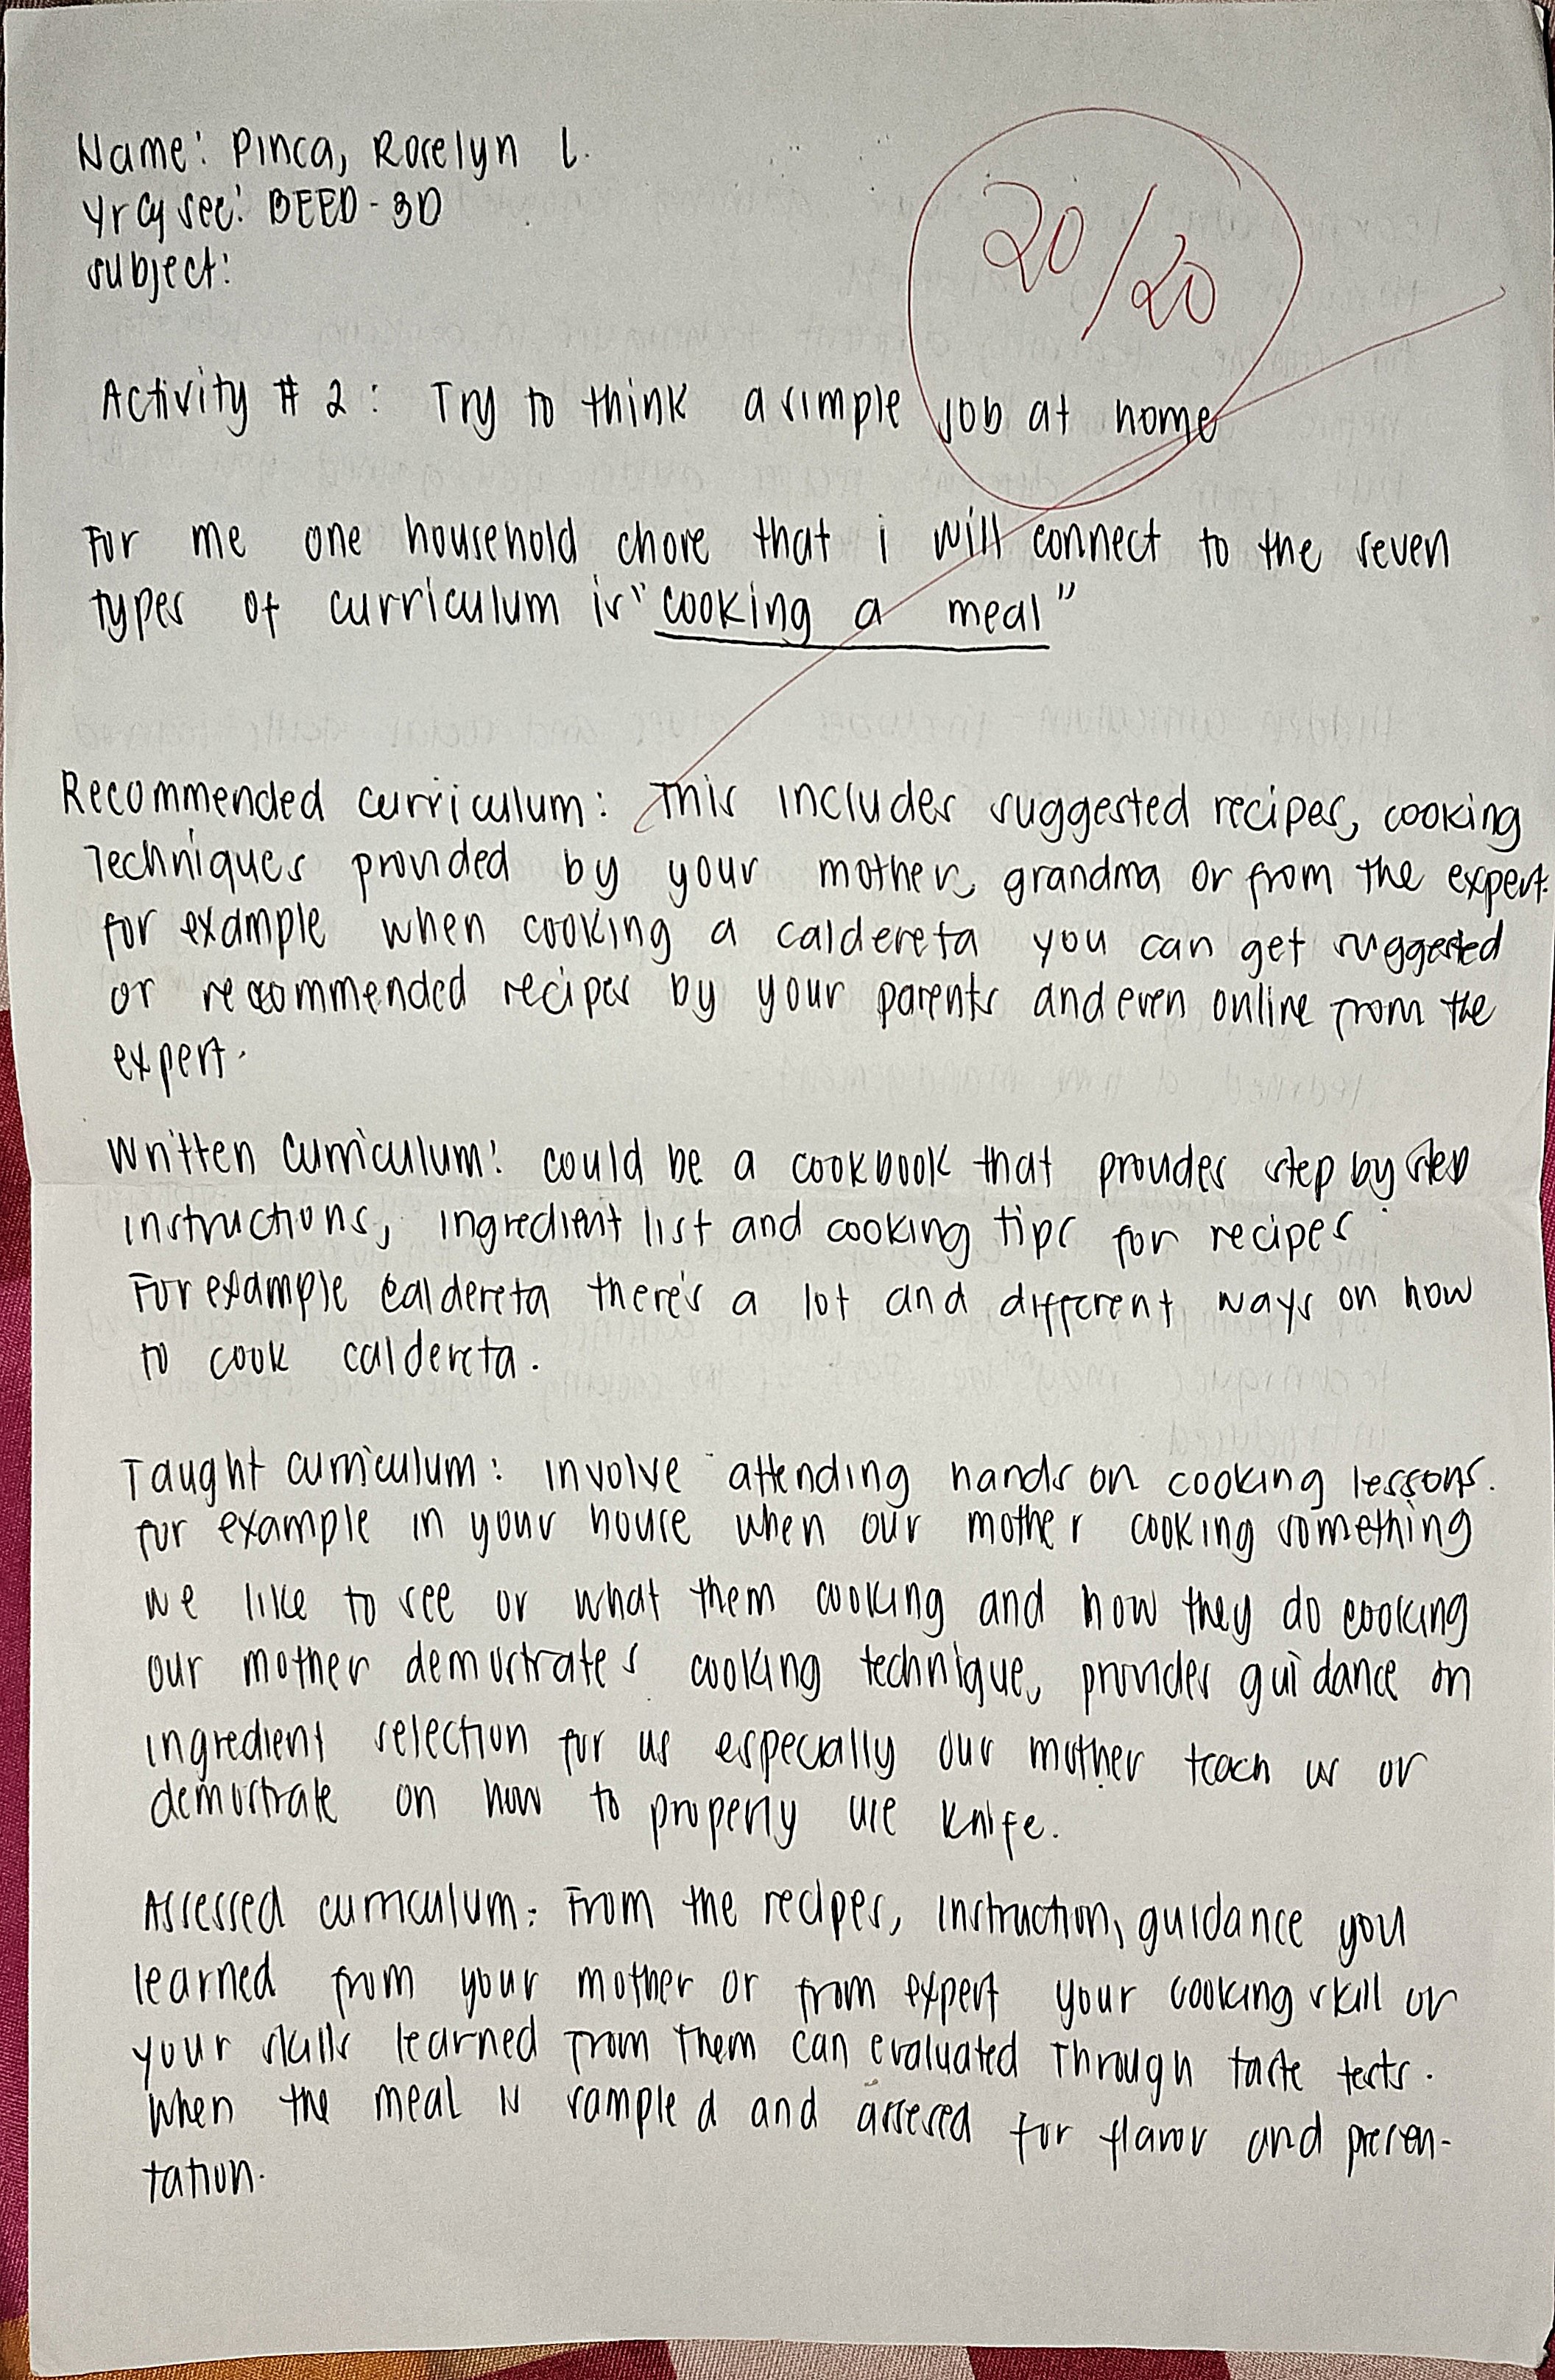 Name: Pinca, Rocelyn L.
Yr & sec: BEED - 3D
subject:
20/20
Activity # 2: Try to think a simple job at home
For me one household chore that i will connect to the seven
types of curriculum is "cooking a meal"
Recommended curriculum: This includes suggested recipes, cooking
Techniques provided by your mother, grandma or from the expert.
for example when cooking a caldereta you can get suggested
or recommended recipes by your parents and even online from the
expert.
Written curriculum: could be a cookbook that provides step by step
instructions, ingredient list and cooking tips for recipes
For example caldereta there's a lot and different ways on how
to cook caldereta.
Taught curriculum: involve attending hands on cooking lessons.
for example in your house when our mother cooking something
we like to see or what them cooking and how they do cooking
our mother demostrates cooking technique, provides guidance on
ingredient selection for us especially our mother teach us or
demostrate on how to properly use knife.
Assessed curriculum: From the recipes, instruction, guidance you
learned from your mother or from expert your cooking skill or
your skills learned from them can evaluated through taste tests.
When the meal is sampled and assesed for flavor and presen-
tation.